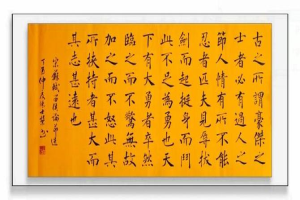 古之所謂豪傑之
士者必有過人之
節人情有所不能
忍者匹夫見辱拔
劍而起挺身而鬥
此不足為勇也天
下有大勇者卒然
臨之而不驚無故
加之而不怒此其
所挾持者甚大而
其志甚遠也
宋蘇軾留侯論節選